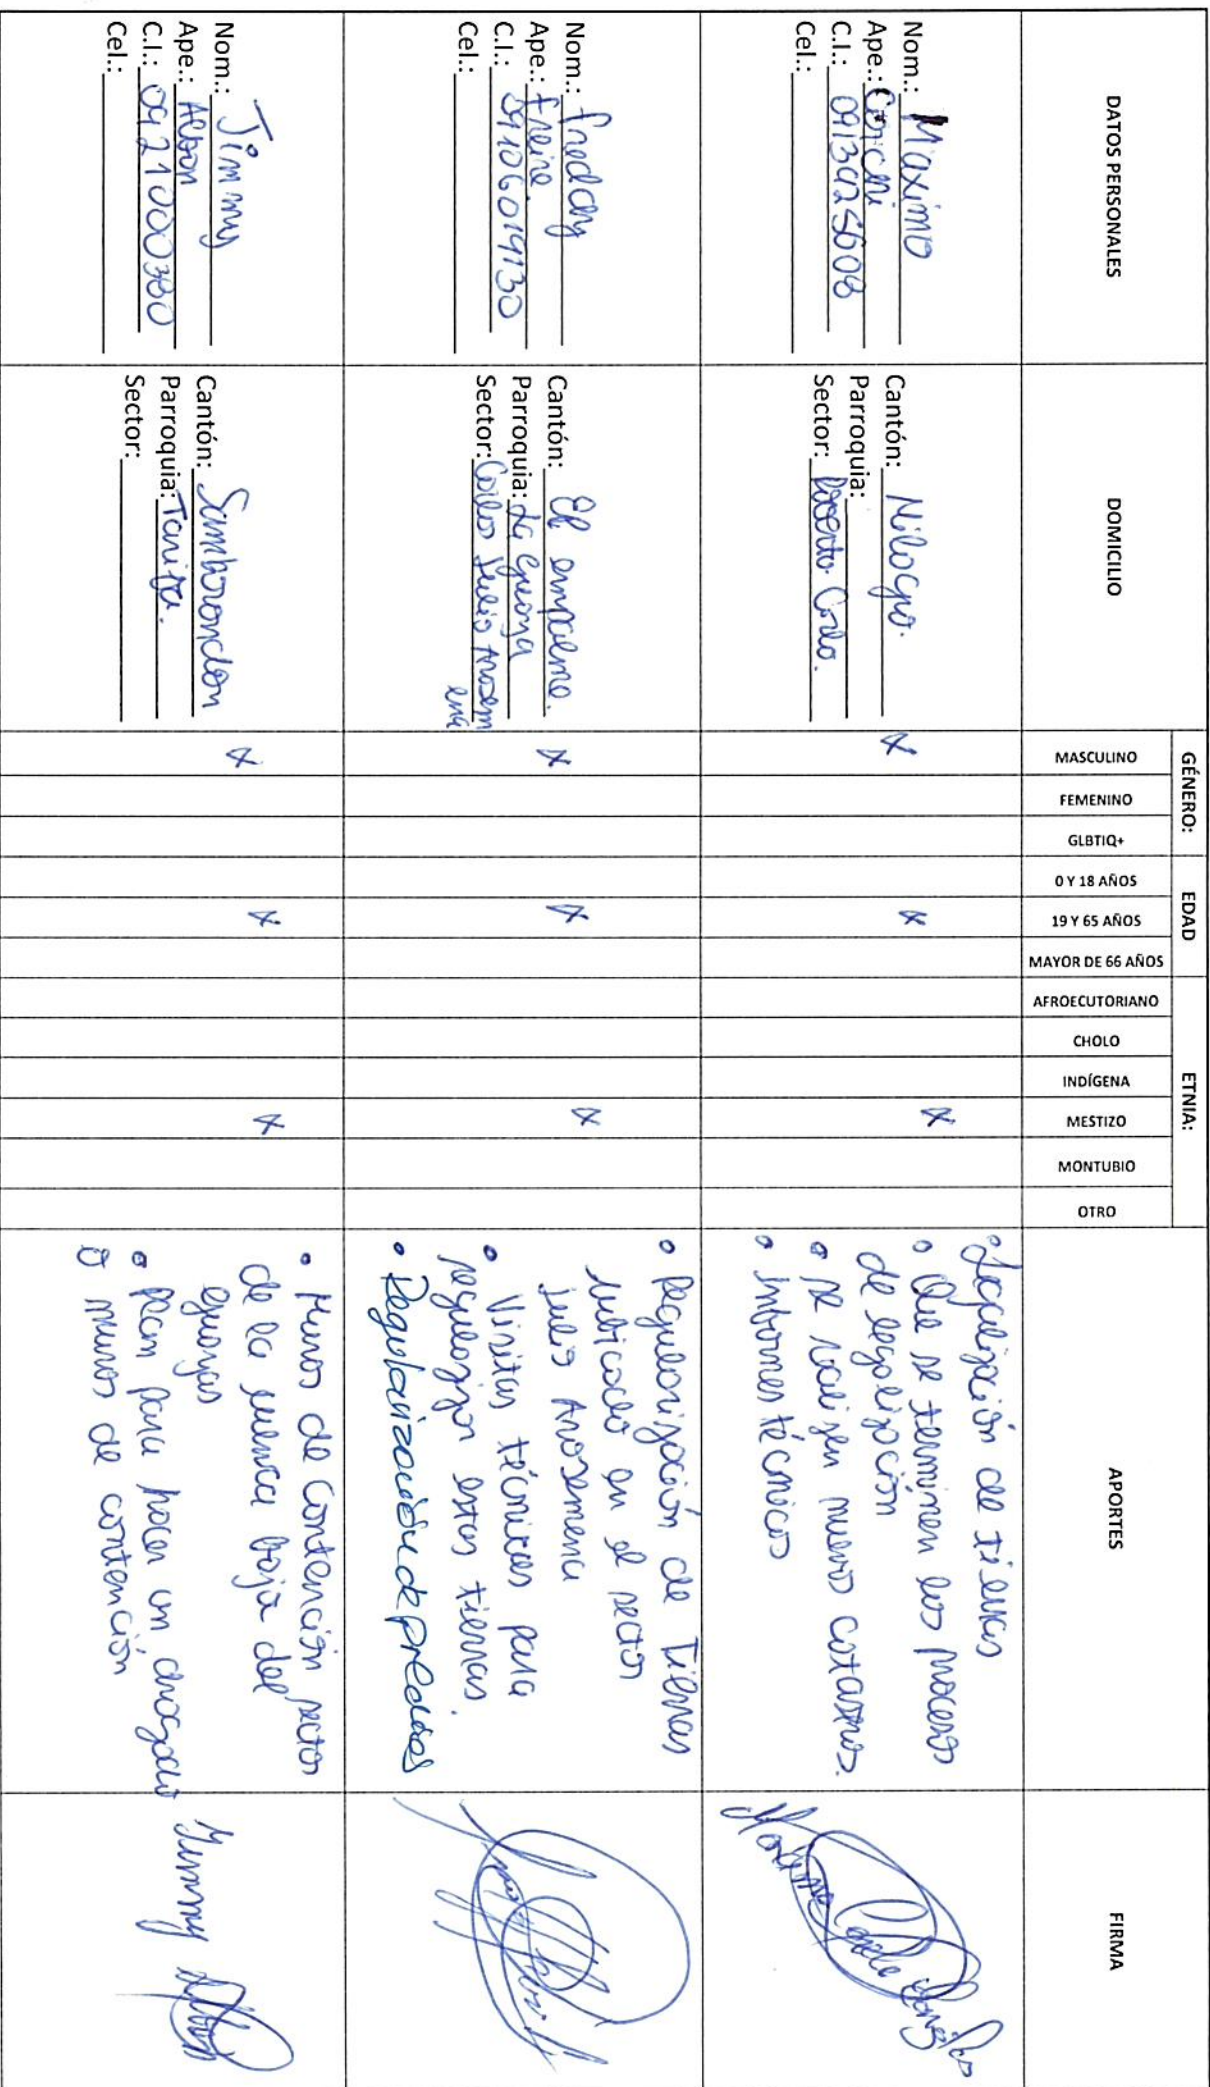 DATOS PERSONALES
DOMICILIO
GÉNERO:
EDAD
ETNIA:
MASCULINO
FEMENINO
GLBTIQ+
0 Y 18 AÑOS
19 Y 65 AÑOS
MAYOR DE 66 AÑOS
AFROECUTORIANO
CHOLO
INDÍGENA
MESTIZO
MONTUBIO
OTRO
APORTES
FIRMA
Nom.: Maximo
Ape.:
C.I.: 0913925608
Cel.:
Cantón: Milagro.
Parroquia:
Sector: Roberto
x
x
x
• Legalización de tierras
• Que se terminen los procesos
de legalización
• se realizen nuevos catastros.
• Informes técnicos
Nom.: freddy
Ape.: freire.
C.I.: 09106019130
Cel.:
Cantón: El empalme.
Parroquia: La Guayas
Sector: Carlos Julio Arosem
ena
x
x
x
• Regularización de Tierras
ubicado en el sector
julio Arosemena
• Visitas técnicas para
regularizar estas tierras.
• Regularización de predios
Nom.: Jimmy
Ape.: Alban
C.I.: 0921000380
Cel.:
Cantón: Samborondon
Parroquia: Tarifa.
Sector:
x
x
x
• Muros de Contención sector
de la cuenca baja del
guayas
• Plan para hacer un dragado
o muros de contención
Jimmy